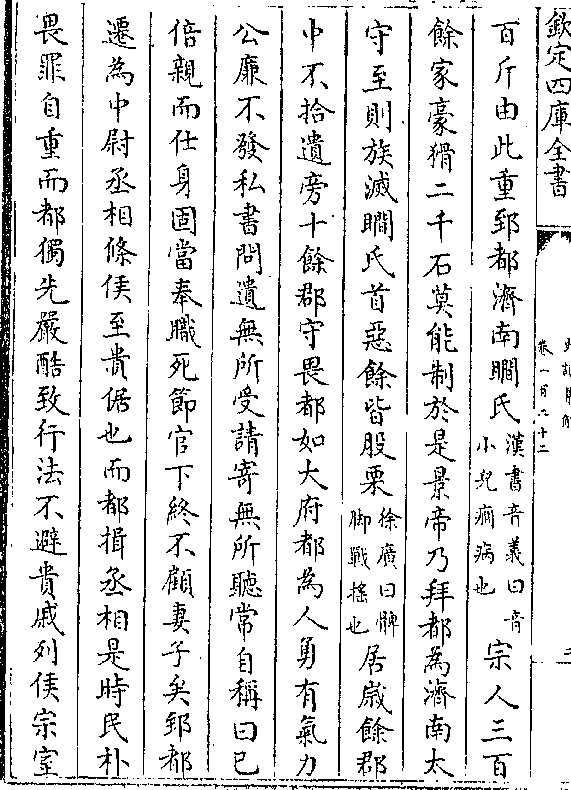 欽定四庫全書
卷一百二十二
百斤由此重郅都濟南瞯氏漢書音義曰音小兒癎病也宗人三百
餘家豪猾二千石莫能制於是景帝乃拜都為濟南太
守至則族滅瞯氏首惡餘皆股栗徐廣曰髀脚戰搖也居嵗餘郡
中不拾遺旁十餘郡守畏都如大府都為人勇有氣力
公廉不發私書問遺無所受請寄無所聽常自稱曰已
倍親而仕身固當奉職死節官下終不顧妻子矣郅都
遷為中尉丞相條侯至貴倨也而都揖丞相是時民朴
畏罪自重而都獨先嚴酷致行法不避貴戚列侯宗室